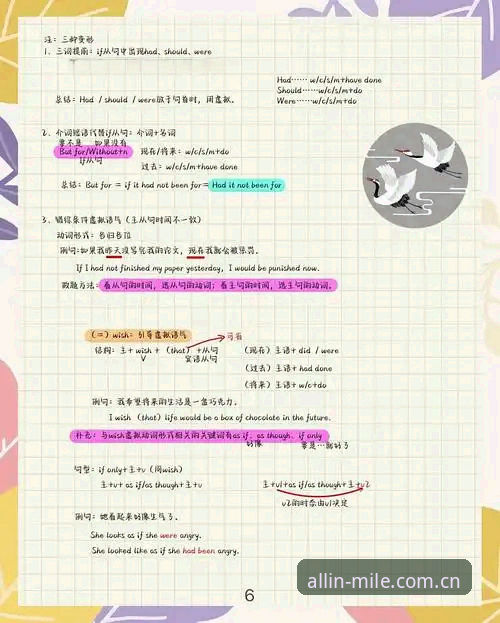 注：三种变形
1. 三词提前：if从句中出现had、should、were
Had…… w/c/s/m+have done
Should……w/c/s/m+do
Were……w/c/s/m+do
总结：Had / should / were放于句首时，用虚拟。
2. 介词短语代替if从句：介词+名词
要不是 如果没有
But for/Without+n 现在/将来：w/c/s/m+do
if从句
过去：w/c/s/m+have done
总结：But for = if it had not been for= Had it not been for
3. 错综条件虚拟语气（主从句时间不一致）
动词形式：各归各位
例句：如果我昨天没写完我的论文，现在我就会被惩罚。
If I had not finished my paper yesterday, I would be punished now.
做题方法：看从句的时间，选从句的动词；看主句的时间，选主句的动词。
（二）wish：引导虚拟语气
可省
结构：主+ wish + （that）+从句
V 宾语从句
（现在）主语+ did / were
（过去）主语+ had done
（将来）主语+ w/c+do
例句：我希望将来的生活是一盒巧克力。
I wish （that）life would be a box of chocolate in the future.
补充：与wish虚拟动词形式相关的关键词有as if；as though、if only
好像 要是…就好了
句型：if only+主+v（同wish）
主+v+ as if/as though+主+v
主+v1+as if/as though+主+v2
v2的时态由v1决定
例句：她看起来好像生气了。
She looks as if she were angry.
She looked like as if she had been angry.
6
allin-mile.com.cn